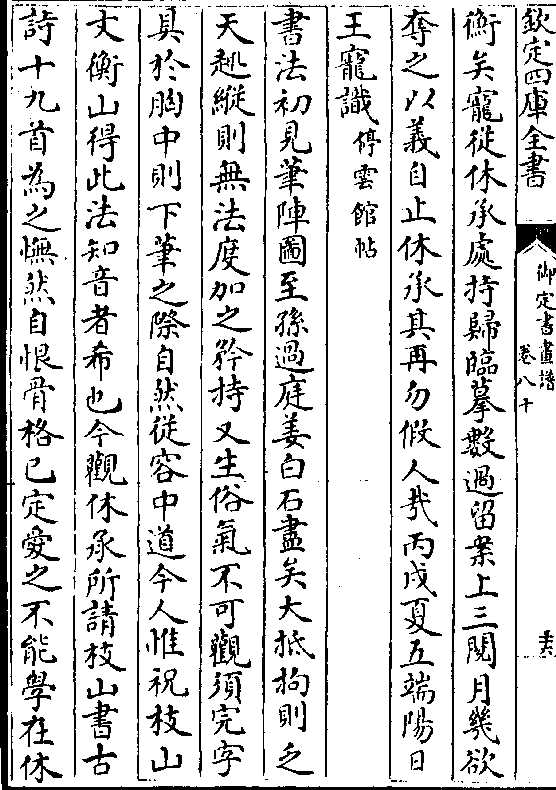 欽定四庫全書
御定書畫譜
卷八十
衡矣寵從休承處持歸臨摹數過留案上三閱月幾欲
奪之以義自止休承其再勿假人㢤丙戌夏五端陽日
王寵識停雲館帖
書法初見筆陣圖至孫過庭姜白石盡矣大抵拘則乏
天趣縱則無法度加之矜持又生俗氣不可觀須完字
具於胸中則下筆之際自然從容中道今人惟祝枝山
文衡山得此法知音者希也今觀休承所請枝山書古
詩十九首為之憮然自恨骨格已定愛之不能學在休